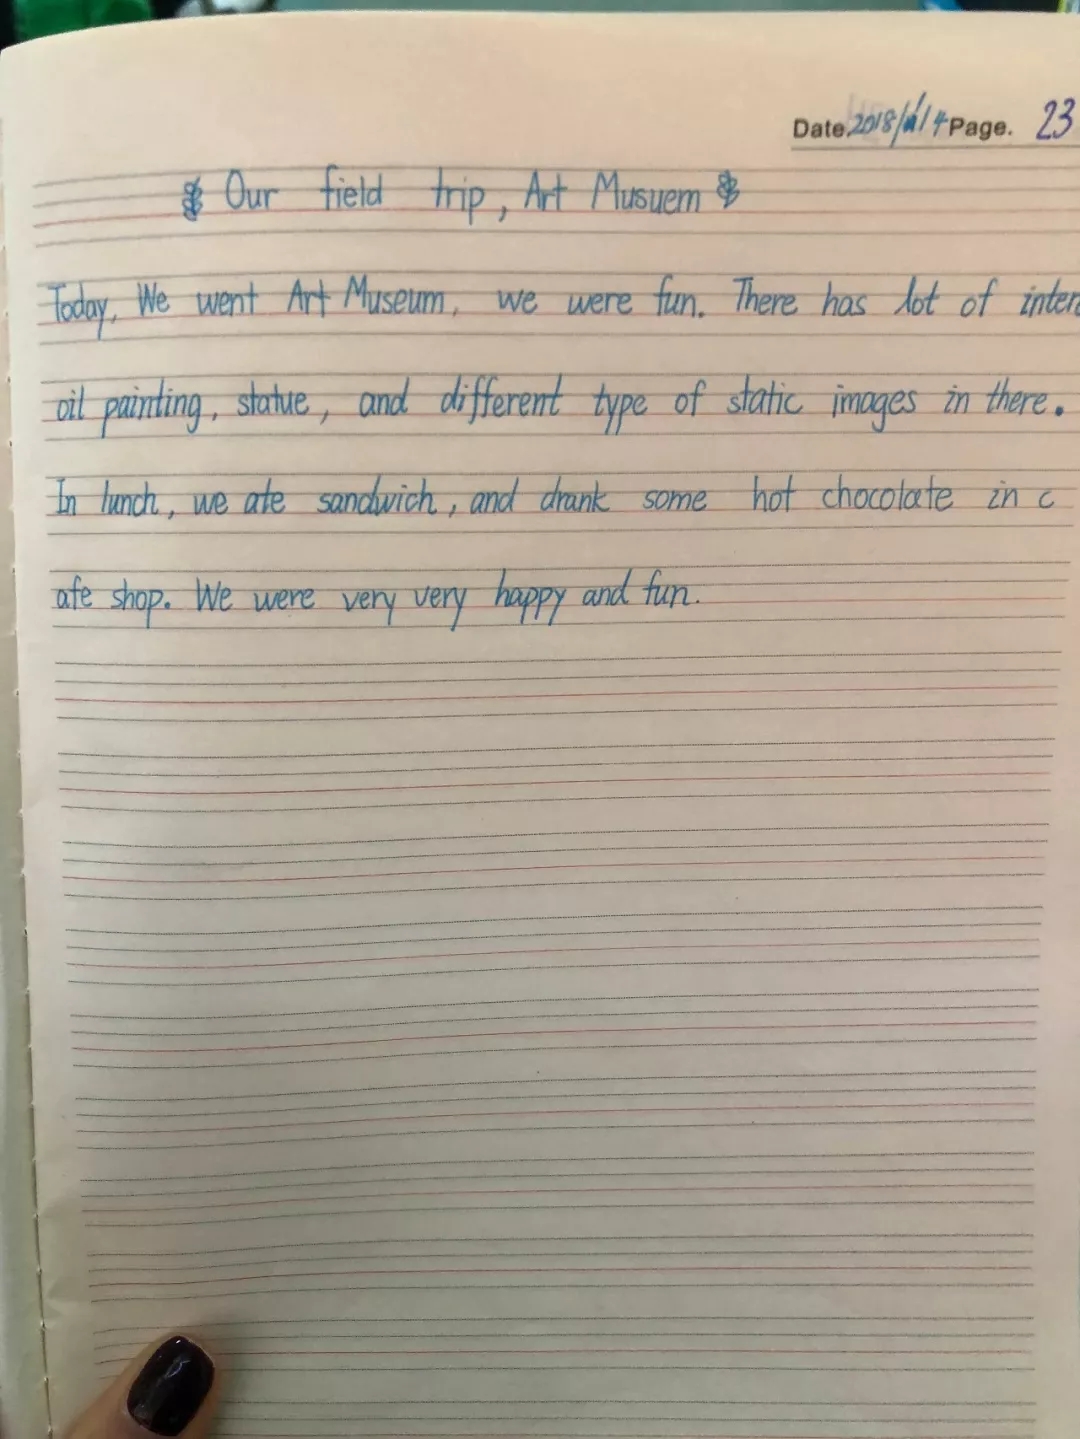 Date. 2018/11/4 Page. 23
Our field trip, Art Musuem
Today, We went Art Museum, we were fun. There has lot of
oil painting, statue, and different type of static images in there.
In lunch, we ate sandwich, and drank some hot chocolate in c
afe shop. We were very very happy and fun.